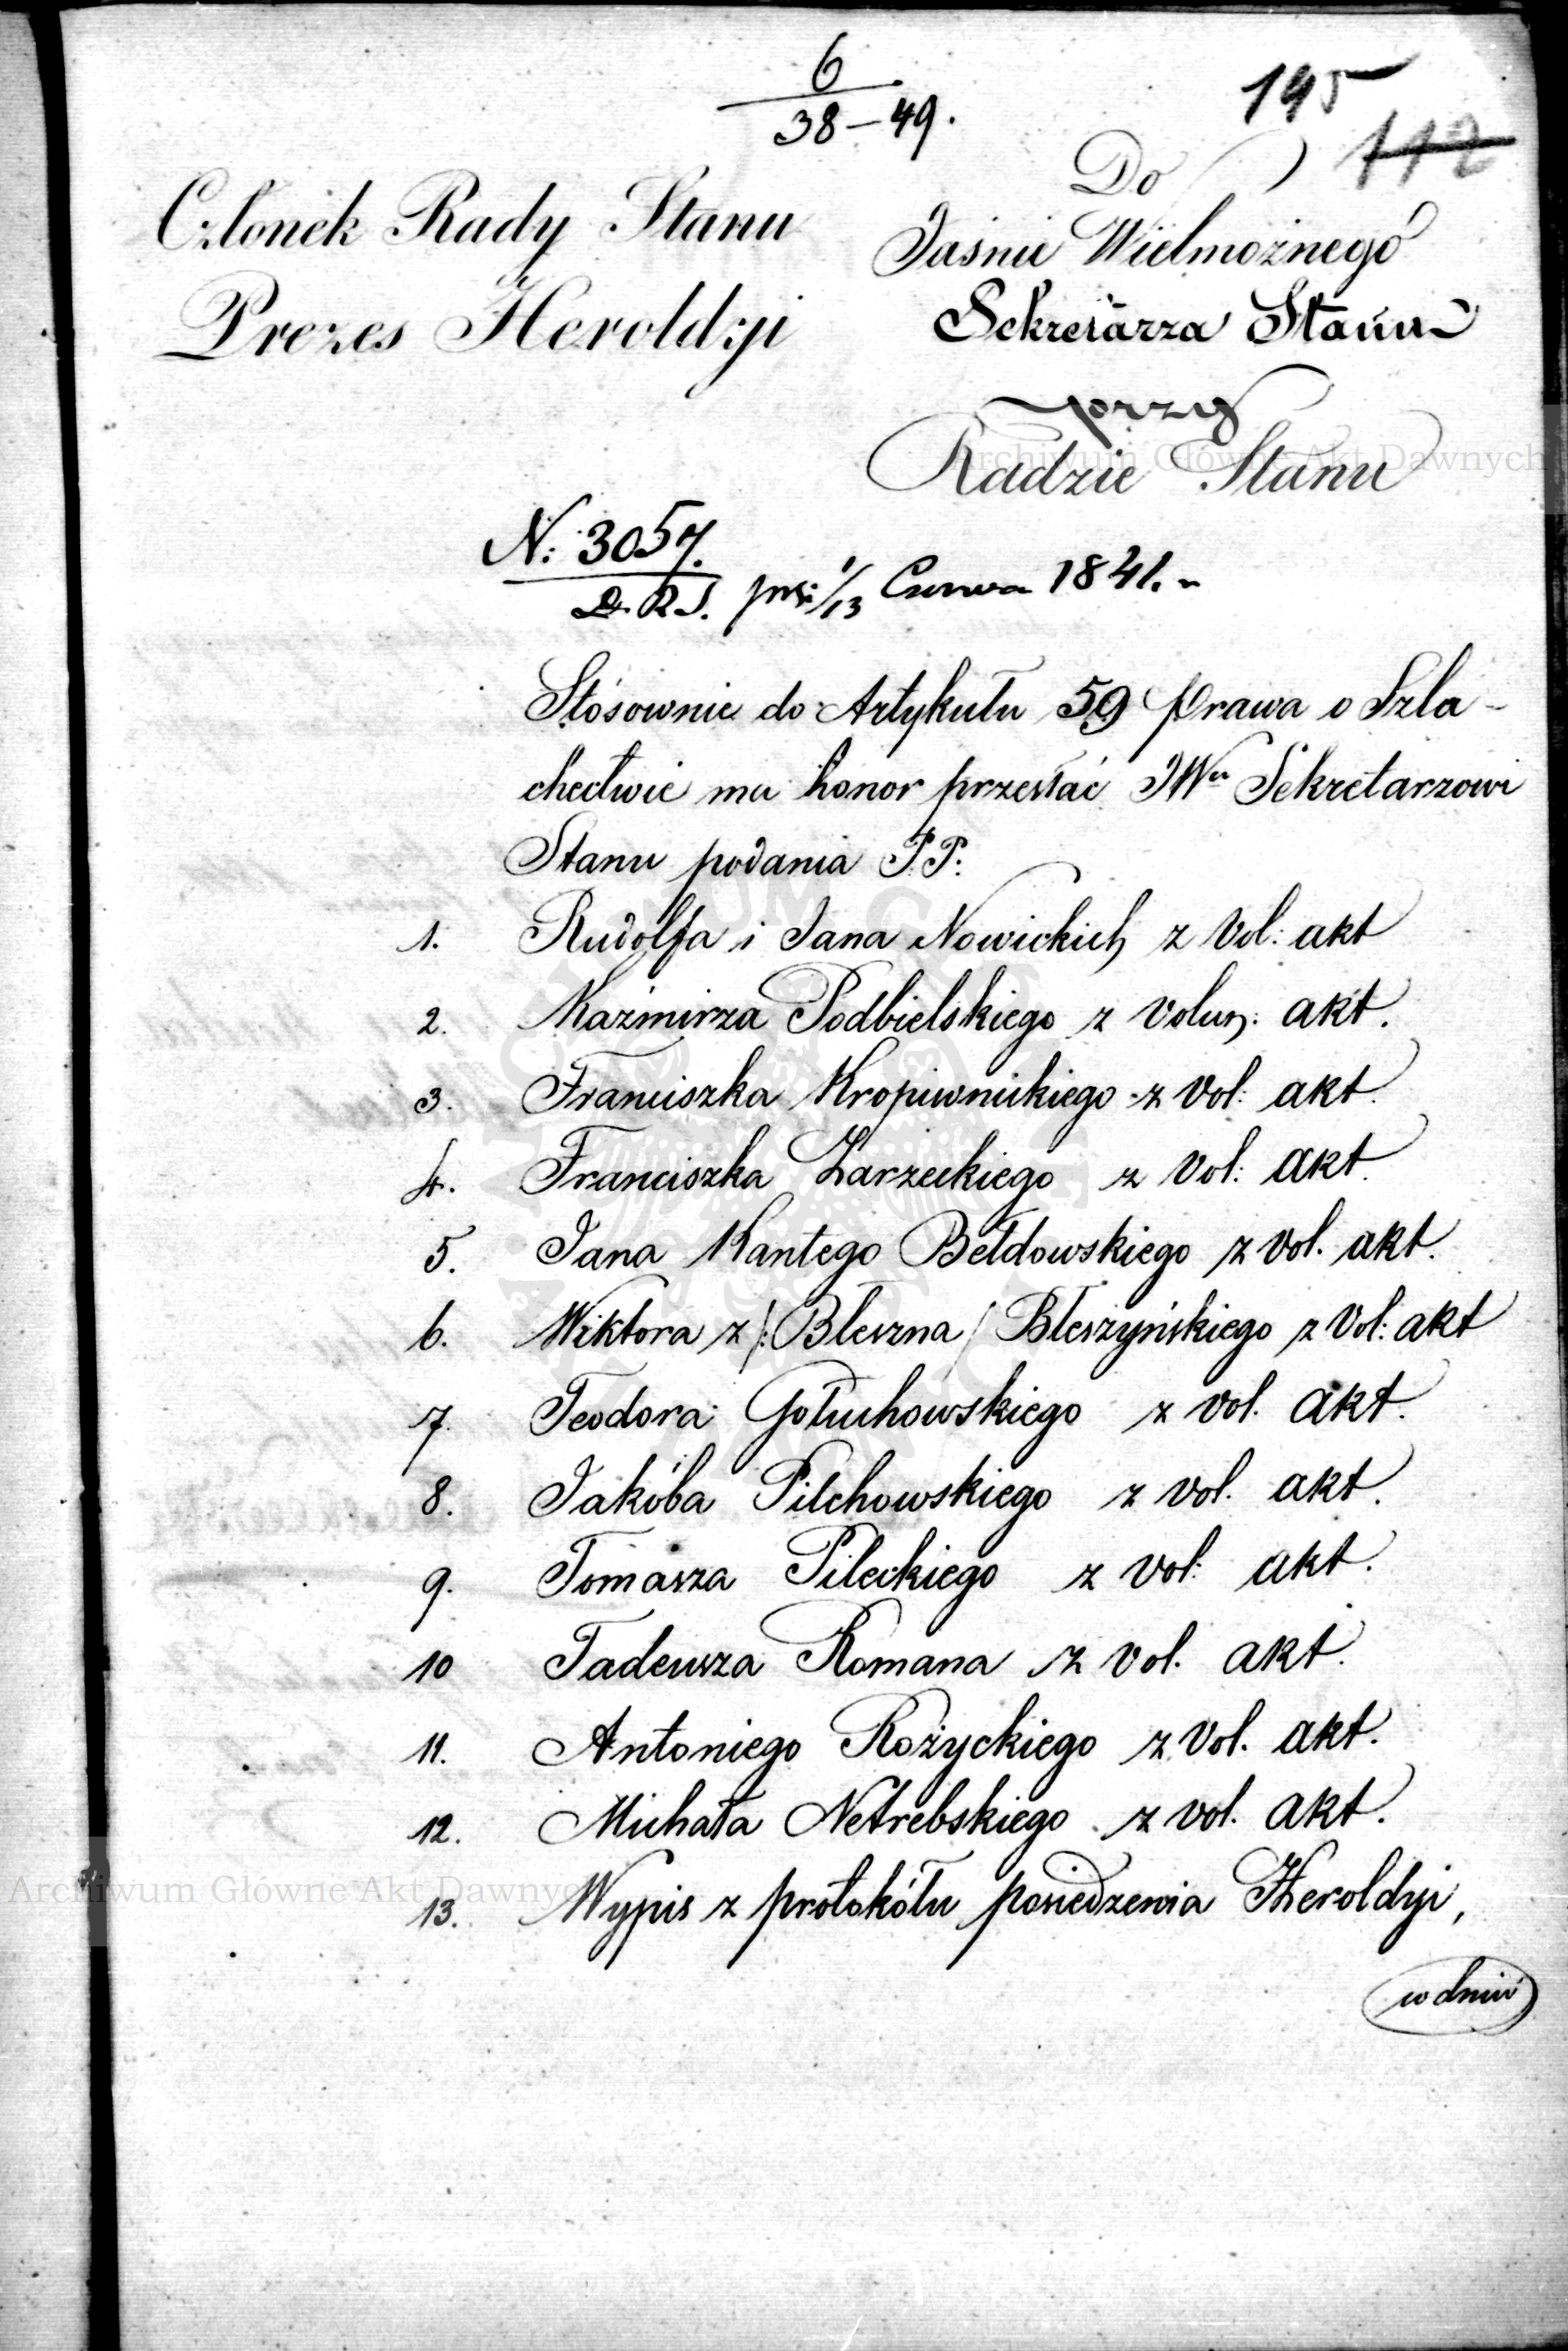 6
38 – 49.
195
112
Do
Członek Rady Stanu
Jaśnie Wielmożnego
Prezes Heroldyi
Sekretarza Stanu
przy
Radzie Stanu
N: 3057.
D. R S. 1/13 Czerwca 1841.
Stósownie do Artykułu 59 Prawa o Szla-
chectwie ma honor przesłać JWu Sekretarzowi
Stanu podania PP:
1. Rudolfa i Jana Nowickich z Vol: akt
2. Kaźmirza Podbielskiego z Volum: akt.
3. Franciszka Kropiwnickiego z Vol: akt.
4. Franciszka Zarzeckiego z Vol: akt.
5. Jana Kantego Bełdowskiego z vol. akt.
6. Wiktora z /:Bleszna/ Bleszyńskiego z Vol: akt
7. Teodora Gołuchowskiego z vol. akt.
8. Jakóba Pilchowskiego z vol. akt.
9. Tomasza Pileckiego z vol: akt.
10 Tadeusza Romana z vol. akt.
11. Antoniego Rożyckiego z Vol. akt.
12. Michała Netrebskiego z vol. akt.
13. Wypis z protokółu posiedzenia Heroldyi,
w dniu
Archiwum Główne Akt Dawnych
Archiwum Główne Akt Dawnych